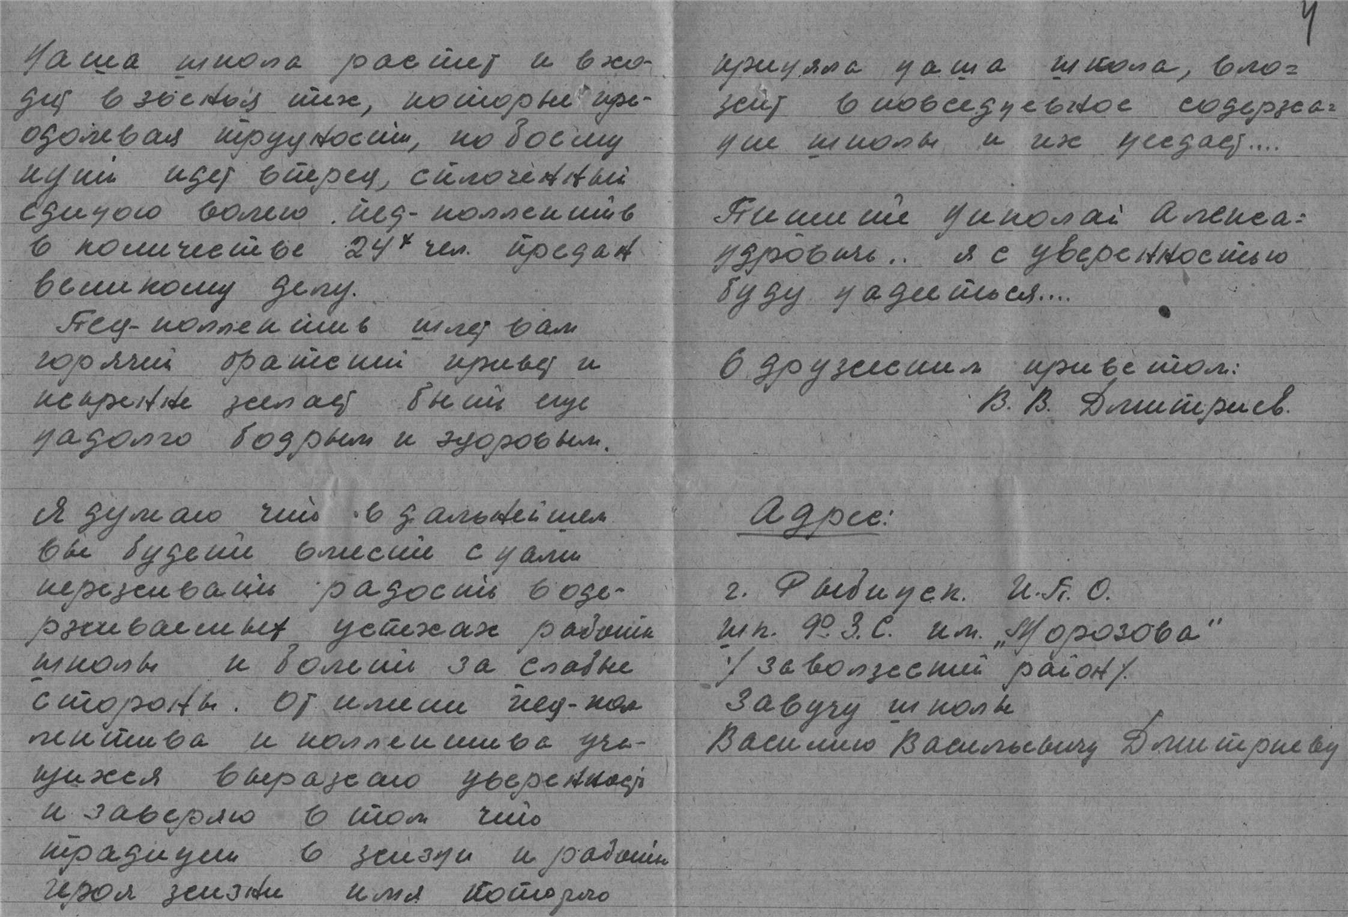 Наша школа растет и вхо-
дит в звенья тех, которые пре-
одолевая трудности, по боему
пути идет вперед, сплоченный
единою волею. Пед-коллектив
в количестве 24х чел. предан
великому делу.
Пед-коллектив шлет вам
горячий братский привет и
искренне желает быть еще
надолго бодрым и здоровым.
Я думаю что в дальнейшем
вы будете вместе с нами
переживать радость в оде-
рживаемых успехах работы
школы и болеть за слабые
стороны. От имени пед-кол
лектива и коллектива уча-
щихся выражаю уверенность
и заверяю в том что
традиции в жизни и работы
героя жизни имя которго
приняла наша школа, вло-
жит в повседневное содержа-
ние школы и их уседает....
Пишите Николай Алекса-
ндрович.. я с уверенностью
буду надеиться....
С дружеским приветом:
В. В. Дмитриев.
Адрес:
г. Рыбинск. И.П.О.
шк. № 3.С. им. „Морозова"
/Заволжский район/.
Завучу школы
Василию Васильевичу Дмитриеву
4